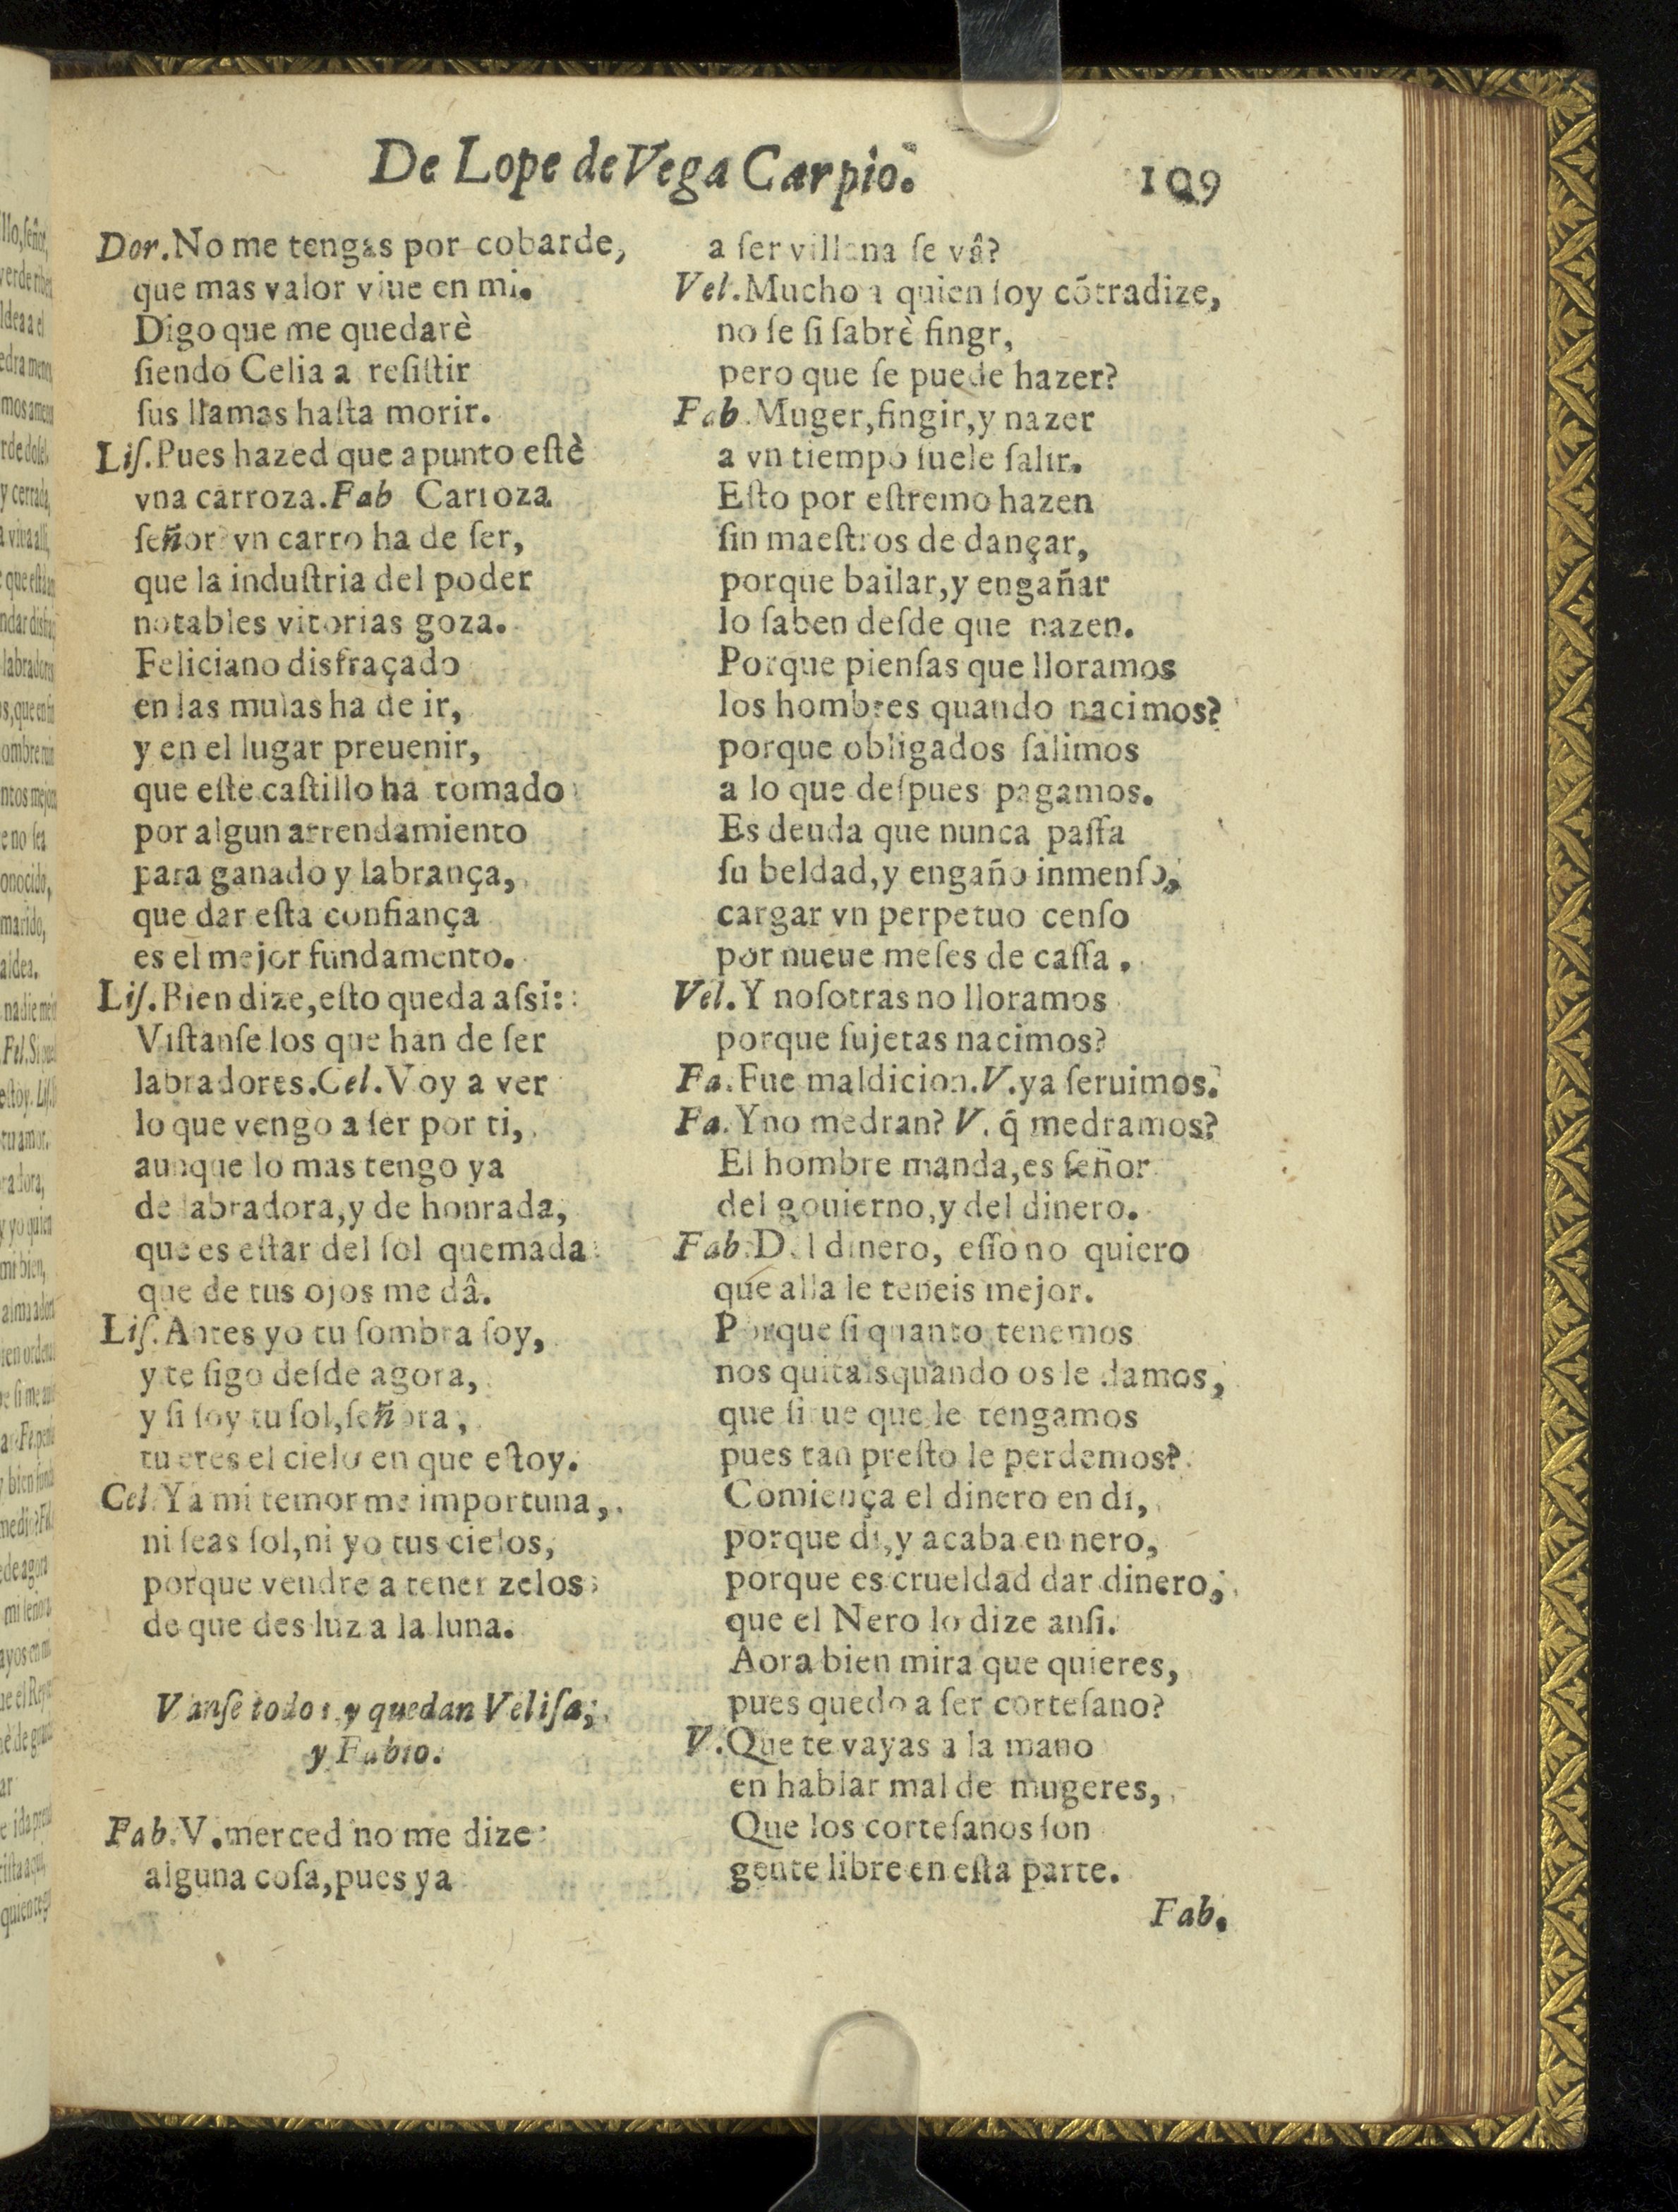 De Lope de Vega Carpio. 109
Dor. No me tengas por cobarde,
que mas valor viue en mi.
Digo que me quedarè
ſiendo Celia a reſiſtir
ſus llamas haſta morir.
Liſ. Pues hazed que apunto eſtè
vna carroza. Fab Carroza
ſeñor? vn carro ha de ſer,
que la induſtria del poder
notables vitorias goza.
Feliciano disfraçado
en las mulas ha de ir,
y en el lugar preuenir,
que eſte caſtillo ha tomado
por algun arrendamiento
para ganado y labrança,
que dar eſta confiança
es el mejor fundamento.
Liſ. Bien dize, eſto queda aſsi:
Viſtanſe los que han de ſer
labradores. Cel. Voy a ver
lo que vengo a ſer por ti,
aunque lo mas tengo ya
de labradora, y de honrada,
que es eſtar del ſol quemada
que de tus ojos me dâ.
Liſ. Antes yo tu ſombra ſoy,
y te ſigo deſde agora,
y ſi ſoy tu ſol, ſeñora,
tu eres el cielo en que eſtoy.
Cel. Ya mi temor me importuna,
ni ſeas ſol, ni yo tus cielos,
porque vendre a tener zelos
de que des luz a la luna.
Vanſe todos y quedan Veliſa,
y Fabio.
Fab. V. merced no me dize
alguna coſa, pues ya
a ſer villana ſe vâ?
Vel. Mucho a quien ſoy cõtradize,
no ſe ſi ſabrè fingr,
pero que ſe puede hazer?
Fab. Muger, fingir, y nazer
a vn tiempo ſuele ſalir.
Eſto por eſtremo hazen
ſin maeſtros de dançar,
porque bailar, y engañar
lo ſaben deſde que nazen.
Porque pienſas que lloramos
los hombres quando nacimos?
porque obligados ſalimos
a lo que deſpues pagamos.
Es deuda que nunca paſſa
ſu beldad, y engaño inmenſo,
cargar vn perpetuo cenſo
por nueue meſes de caſſa.
Vel. Y noſotras no lloramos
porque ſujetas nacimos?
Fa. Fue maldicion. V. ya ſeruimos.
Fa. Y no medran? V. q̃ medramos?
El hombre manda, es ſeñor
del gouierno, y del dinero.
Fab. Del dinero, eſſo no quiero
que alla le teneis mejor.
Porque ſi quanto tenemos
nos quitais quando os le damos,
que ſirue que le tengamos
pues tan preſto le perdemos?
Comiença el dinero en di,
porque di, y acaba en nero,
porque es crueldad dar dinero,
que el Nero lo dize anſi.
Aora bien mira que quieres,
pues quedo a ſer corteſano?
V. Que te vayas a la mano
en hablar mal de mugeres,
Que los corteſanos ſon
gente libre en eſta parte.
Fab.